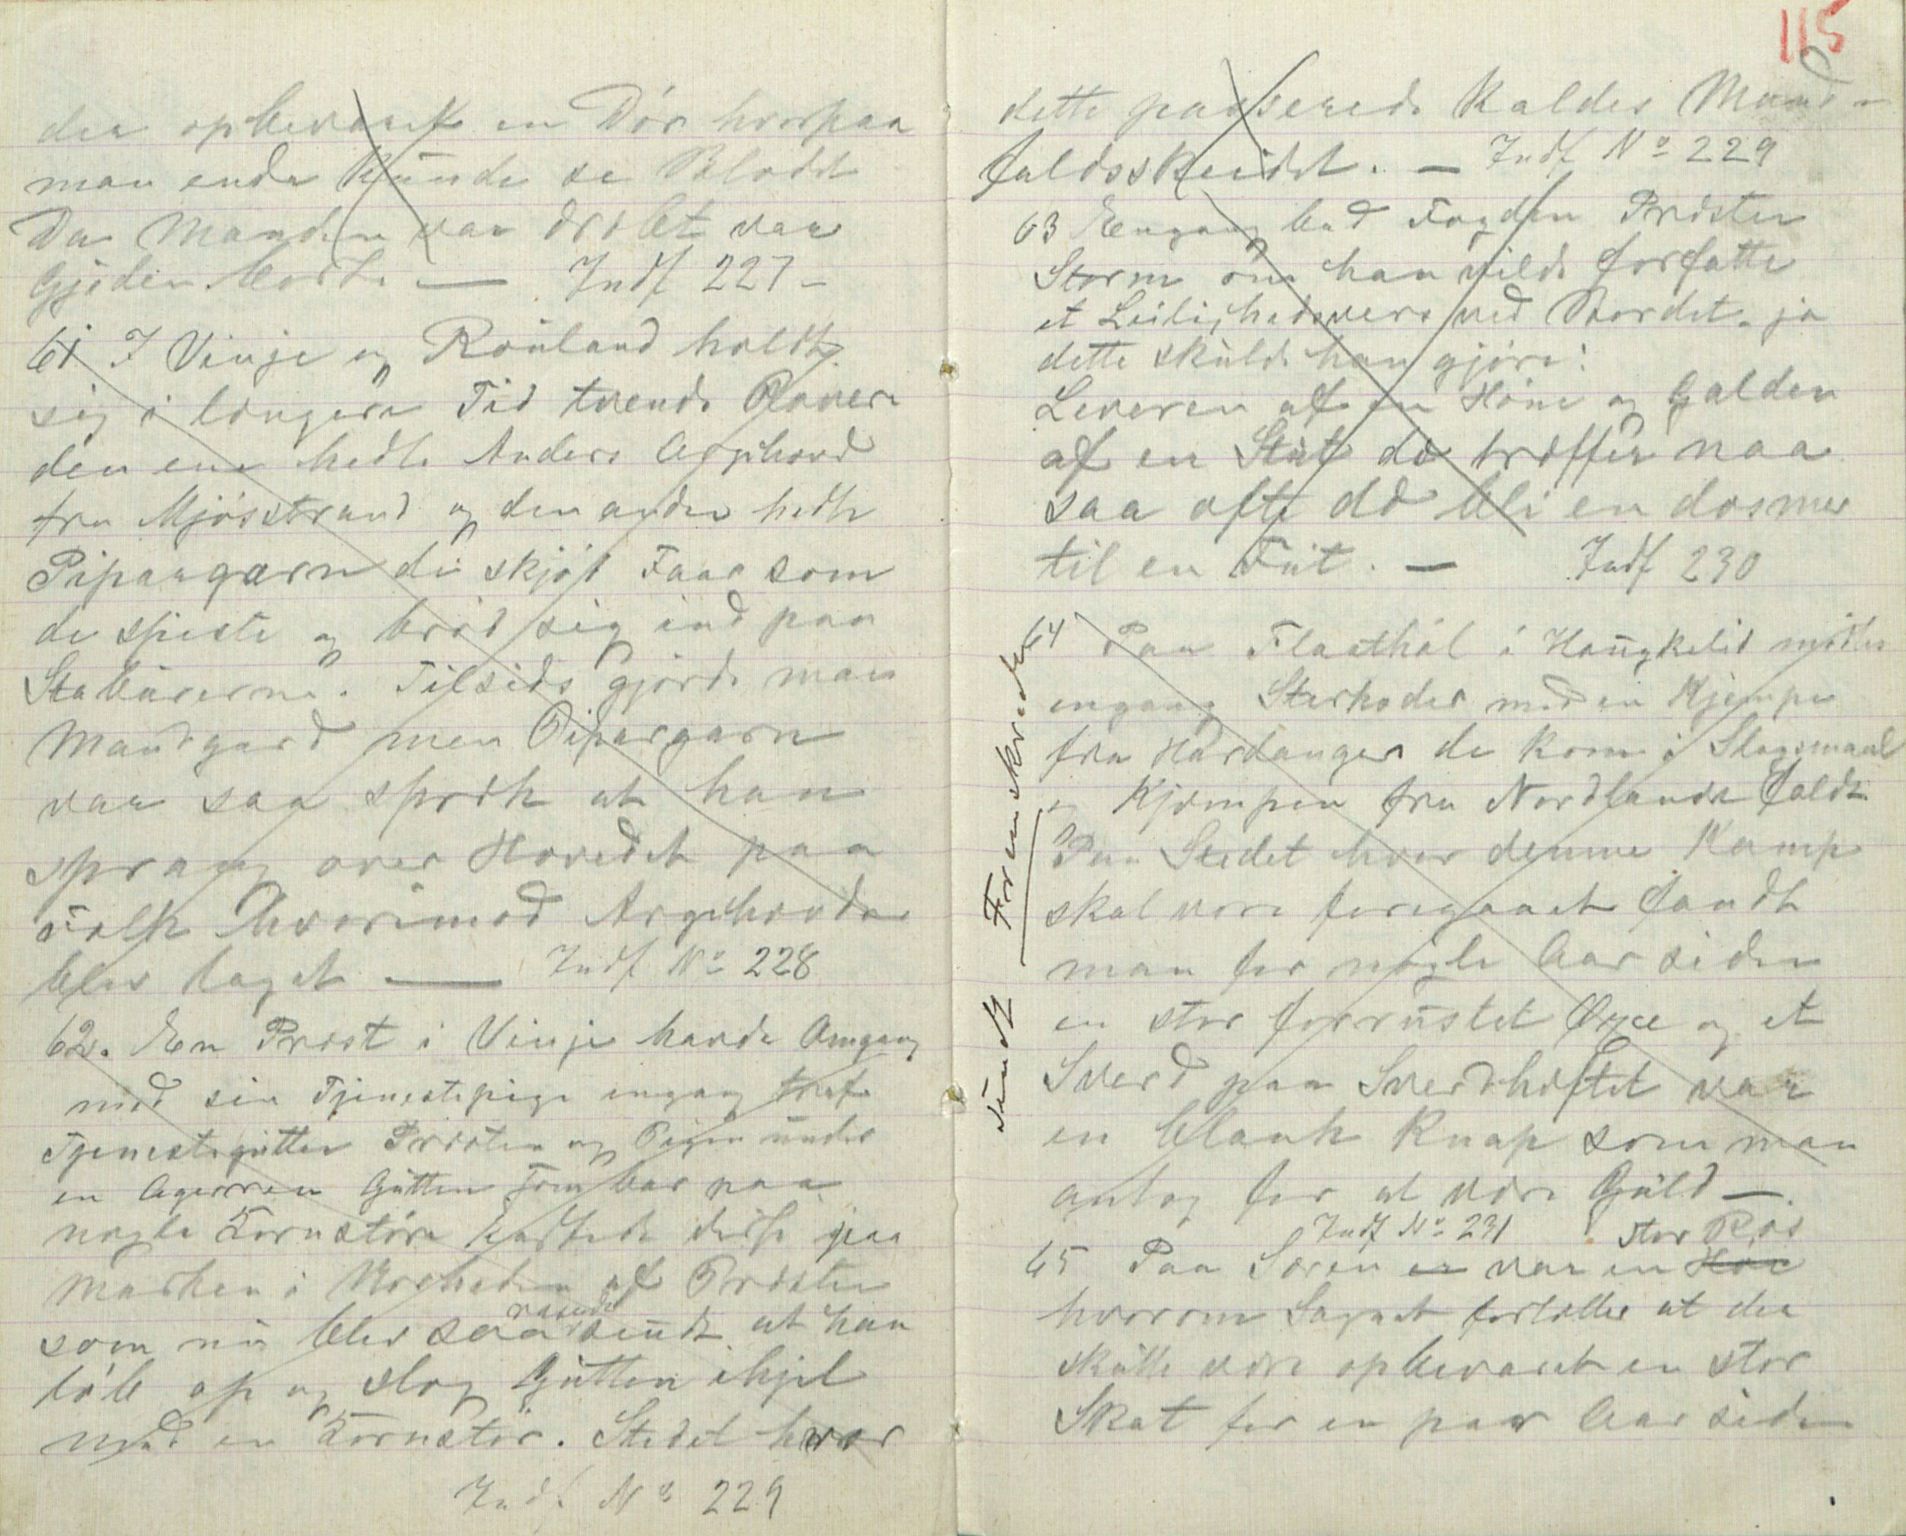 115
der opbevaret en Dør hvorpaa
man enda kunde se Blodet
Da Manden var dræbt var
Gjøden borte — Indf 227 —
61 I Vinje og Rauland holdt
sig i længere Tid tvende Røvere
den ene hedte Anders Argehovd
fra Mjösstrand og den anden hedte
Pipargarn de skjöt Faar som
de spiste og bröd sig ind paa
Stabürerne. Tilsids gjorde man
Mandgard men Pipargarn
var saa spræk at han
sprang over Hovedet paa
Folk hvorimod Argehovda
blev taget — Indf No 228
62. En Præst i Vinje havde Omgang
med sin Tjenestepige engang traf
Tjenestegutten Præsten og Pigen under
en Agerren Gutten som bar paa
nogle Kornstöre kastede disse paa
Marken i Nærheden af Præsten
rasende
som nu blev saa sindt at han
löb op og slog Gutten ihjel
med en Kornstör. Stedet hvor
Indf No 229
dette passerede kaldes Mand-
faldsskeidet. — Indf No 229
63 Engang bad Fogden Præsten
Storm om han vilde forfatte
et Leilighedsvers ved Bordet. ja
dette skulde han gjöre:
Leveren af en Höne og Galden
af en Stut de træffer naa
saa ofte dæ bli en dosmer
til en Fut. — Indf 230
64 Paa Flaathöl i Haugkelid mödtes
engang Sterkoder med en Kjempe
fra Hardanger de kom i Slagsmaal
og Kjæmpen fra Nordlande faldt
Paa Stedet hvor denne Kamp
skal være foregaaet fandt
man for nogle Aar siden
en stor forrustet Øxe og et
Sverd paa Sverdhæftet var
en blank Knap som man
antog for at være Guld —.
Indf No 231 stor Rös
65 Paa Særen er var en Hör
hvorom Sagnet fortæller at der
skulle være opbevaret en stor
Skat for en paar Aar siden
sundt Foran skreden